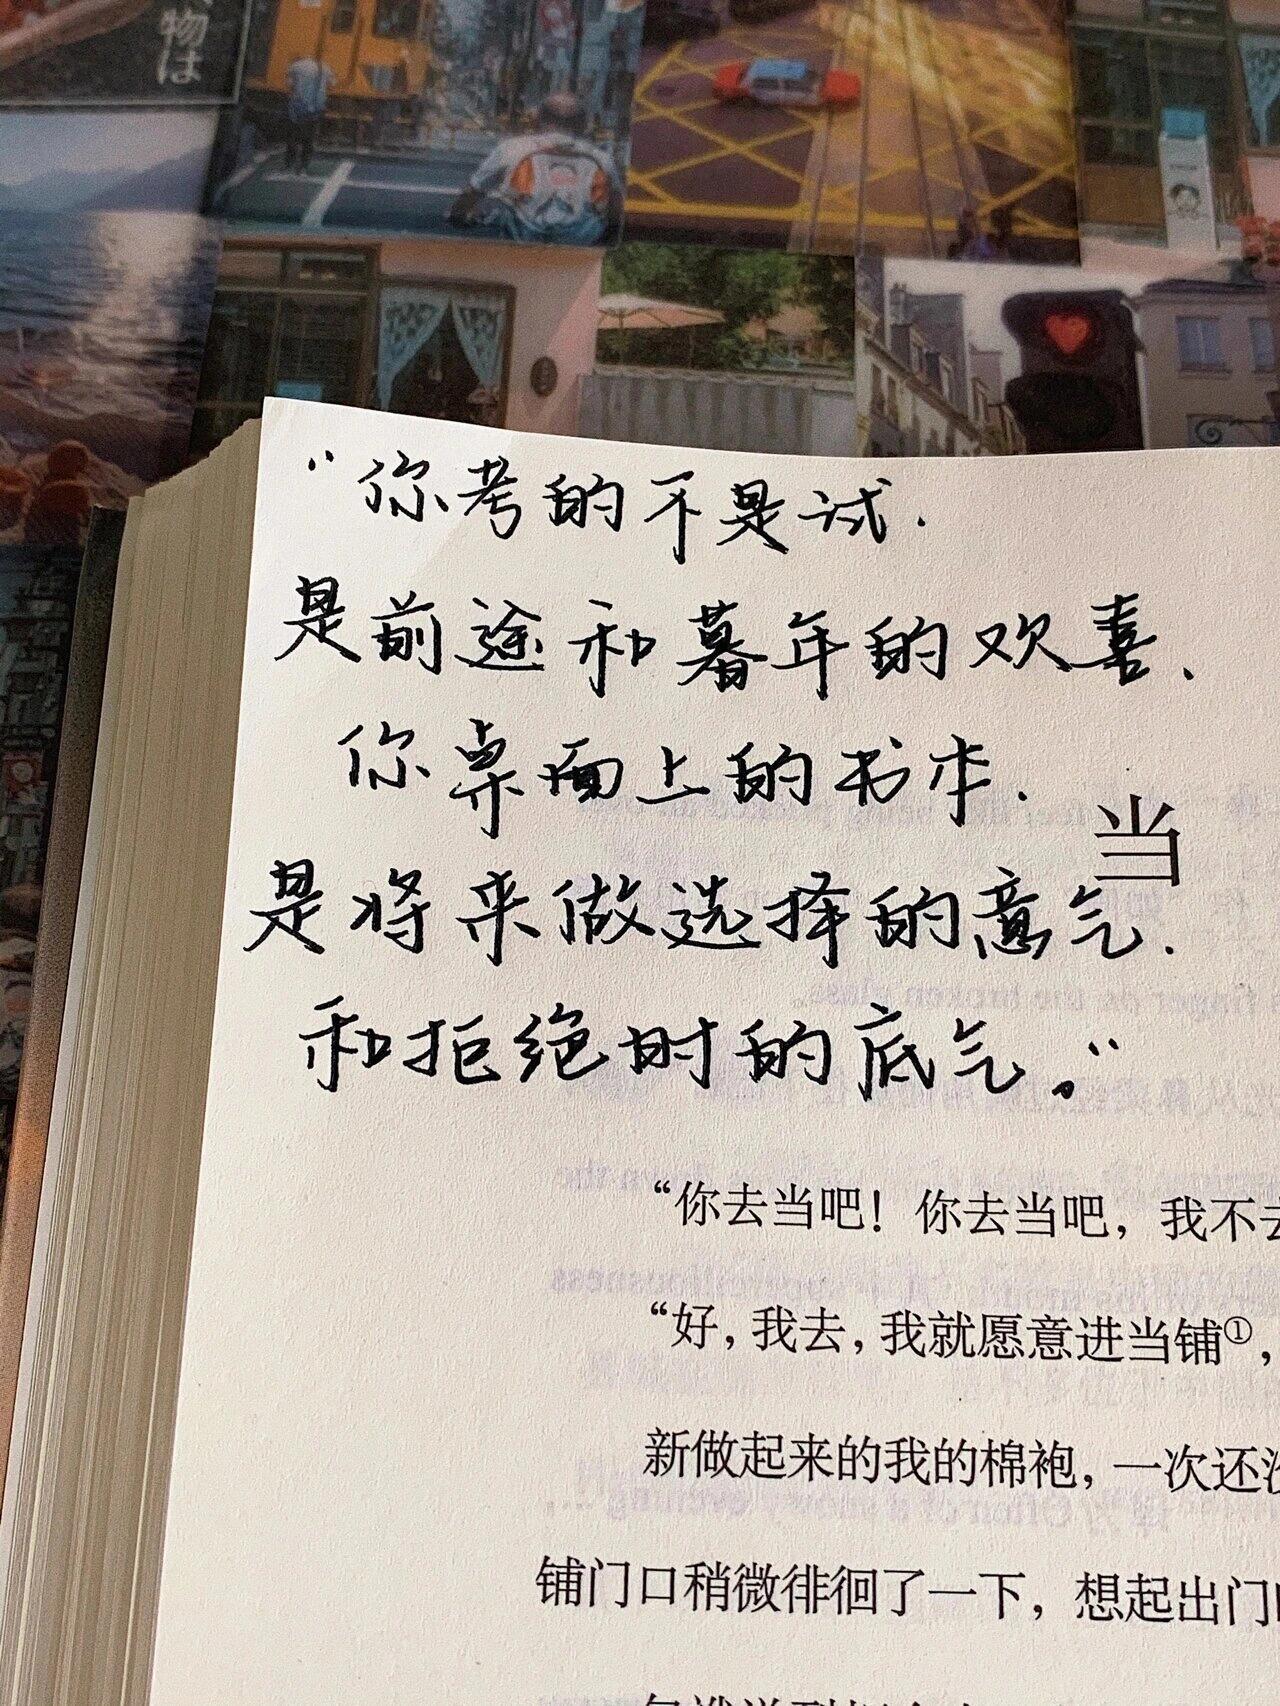 物は
“你考的不是试.
是前途和暮年的欢喜、
你桌面上的书本.
当
是将来做选择的意气.
和拒绝时的底气。”
“你去当吧！你去当吧，我不去
“好，我去，我就愿意进当铺①，
新做起来的我的棉袍，一次还没
铺门口稍微徘徊了一下，想起出门时